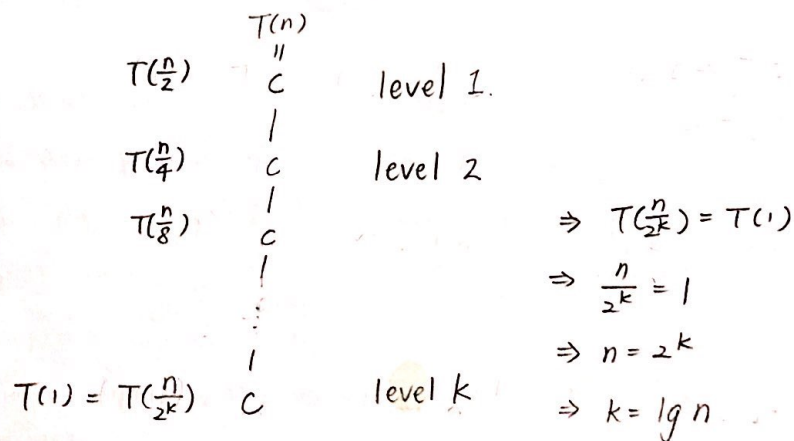 T(n)
=
T(n/2) C level 1.
T(n/4) C level 2
T(n/8) C
⋮
T(1) = T(n/2^k) C level k
⇒ T(n/2^k) = T(1)
⇒ n/2^k = 1
⇒ n = 2^k
⇒ k = lg n